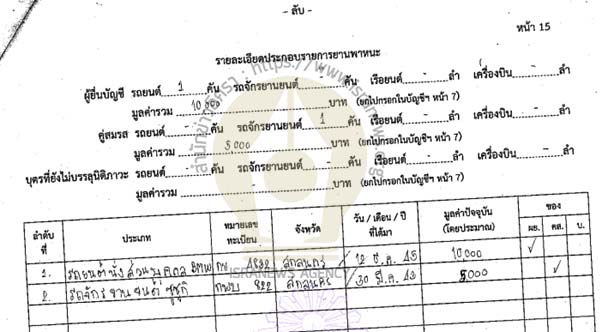 - ลับ -
หน้า 15
รายละเอียดประกอบรายการยานพาหนะ
ผู้ยื่นบัญชี รถยนต์ 1 คัน รถจักรยานยนต์ - คัน เรือยนต์ - ลำ เครื่องบิน - ลำ
มูลค่ารวม 10,000 บาท (ยกไปกรอกในบัญชีฯ หน้า 7)
คู่สมรส รถยนต์ - คัน รถจักรยานยนต์ 1 คัน เรือยนต์ - ลำ เครื่องบิน - ลำ
มูลค่ารวม 5,000 บาท (ยกไปกรอกในบัญชีฯ หน้า 7)
บุตรที่ยังไม่บรรลุนิติภาวะ รถยนต์ - คัน รถจักรยานยนต์ - คัน เรือยนต์ - ลำ เครื่องบิน - ลำ
มูลค่ารวม - บาท (ยกไปกรอกในบัญชีฯ หน้า 7)
ลำดับที่ ประเภท หมายเลขทะเบียน จังหวัด วัน / เดือน / ปี ที่ได้มา มูลค่าปัจจุบัน (โดยประมาณ) ของ ผย. คส. บ.
1. รถยนต์นั่งส่วนบุคคล สกลนคร ต.ค. 45 10,000 ✓
2. รถจักรยานยนต์ ซูซูกิ 822 สกลนคร 30 มี.ค. 43 5,000 ✓
สำนักข่าวอิศรา : https://www.isranews.org
ISRANEWS AGENCY